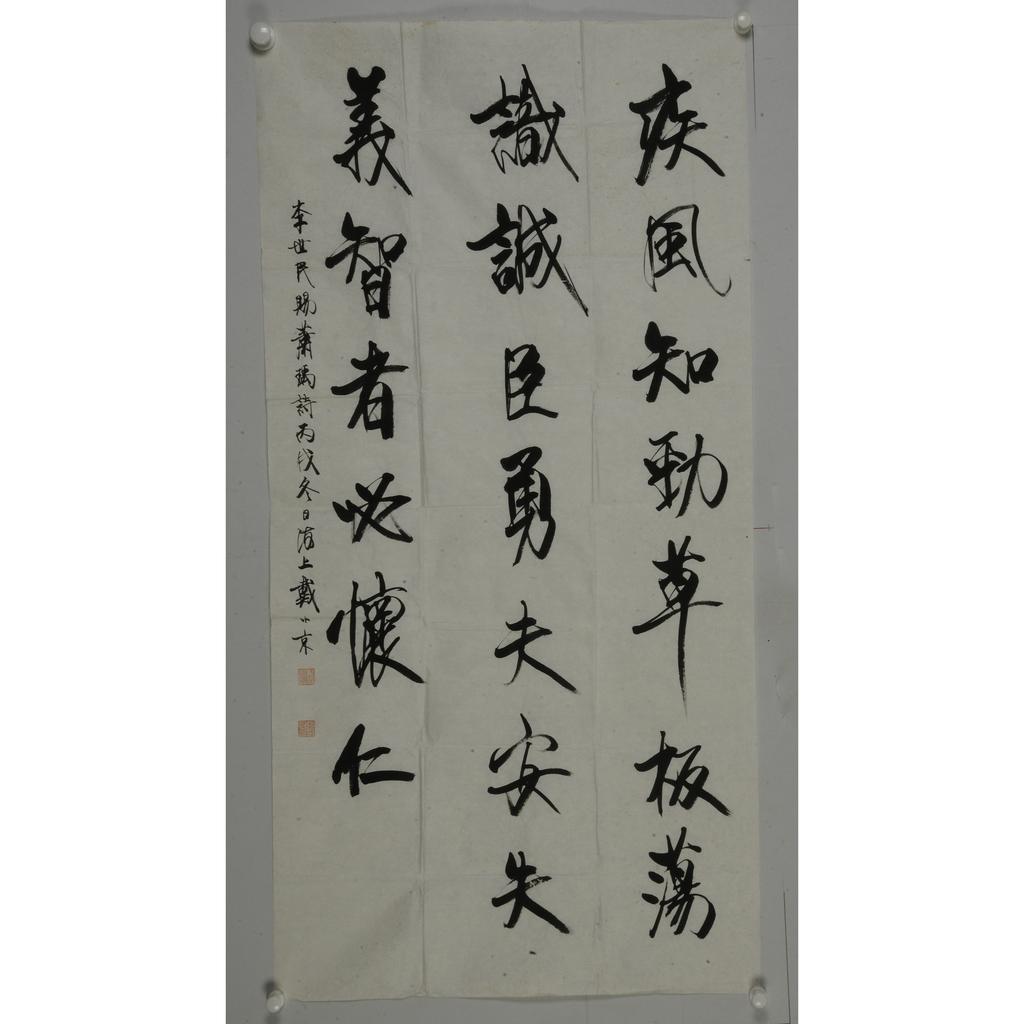 疾風知勁草板蕩
識誠臣勇夫安失
義智者必懷仁
李世民賜蕭瑀詩丙戌冬日海上戴小京